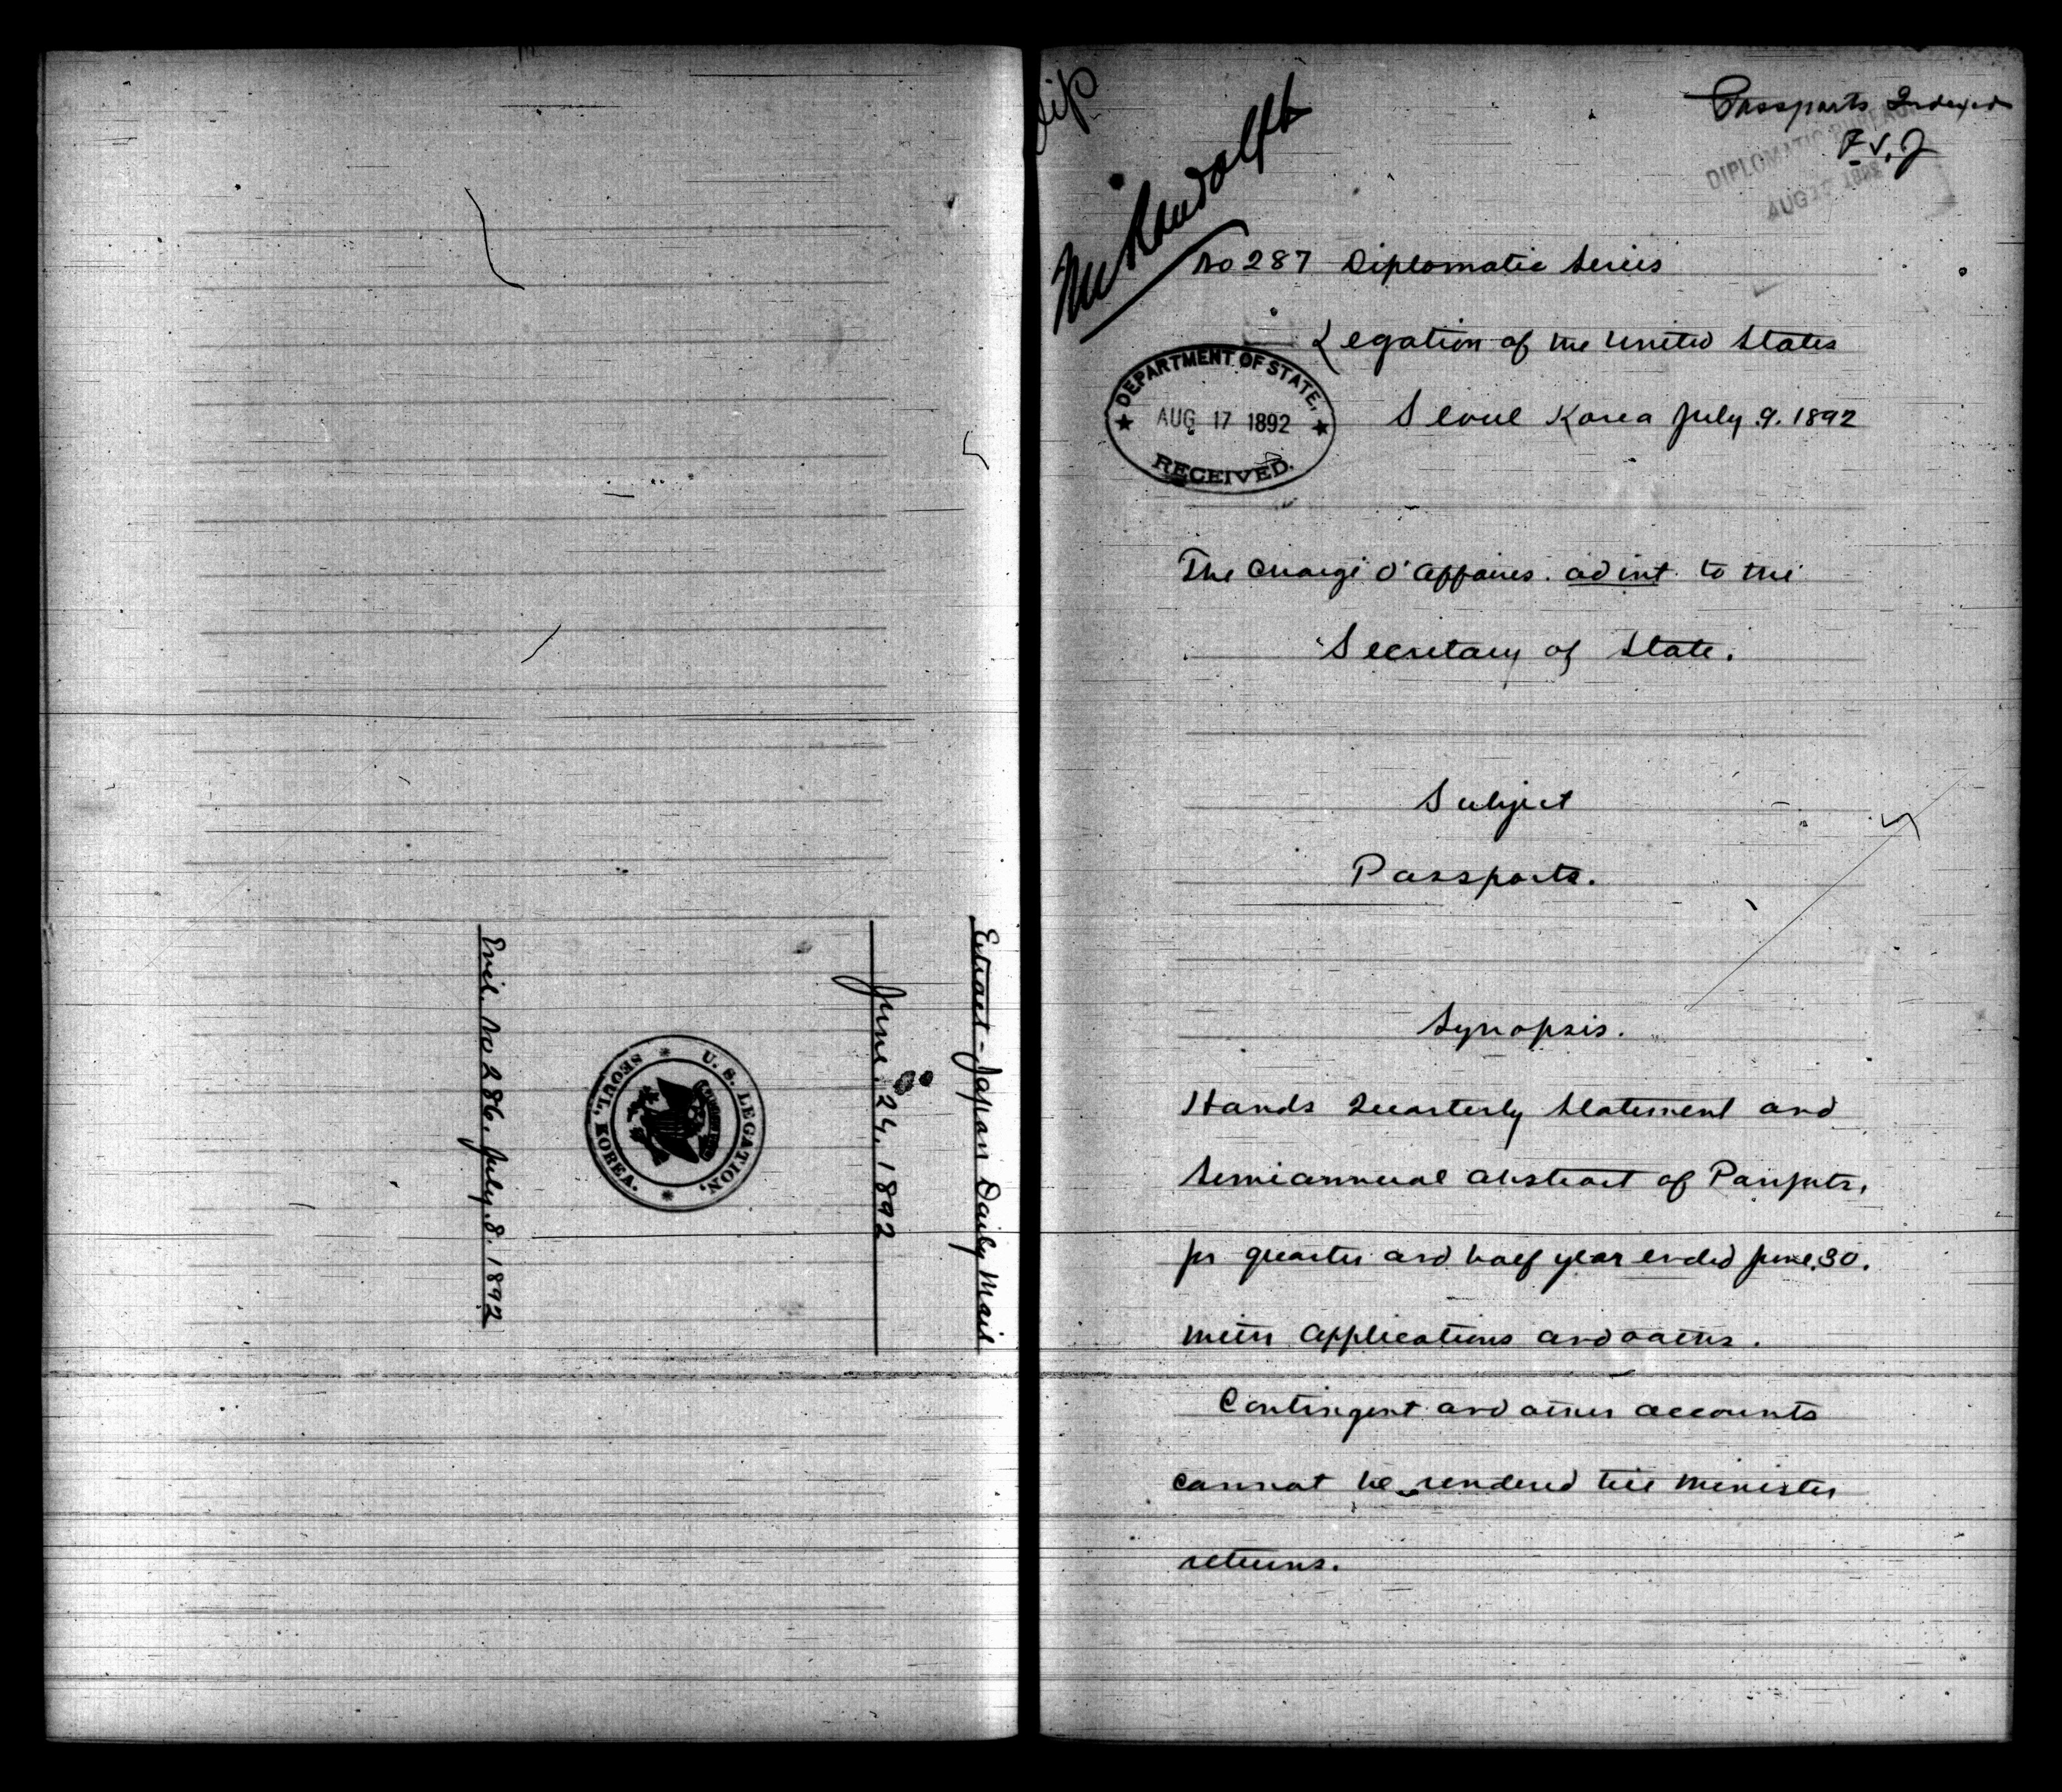 Extract - Japan Daily Mail
June. 24. 1892
U. S. LEGATION,
SEOUL, KOREA.
Encl. No 286. July. 8. 1892
Dip
Mr Randolph
Passports Indexed
F.V.J
DIPLOMATIC BUREAU
AUG 1892
No 287 Diplomatic Series
Legation of the United States
DEPARTMENT OF STATE,
AUG 17 1892
RECEIVED.
Seoul Korea July. 9. 1892
The Chargé d'Affaires. ad int. to the
Secretary of State.
Subject
Passports.
Synopsis.
Hands Quarterly Statement and
Semiannual abstract of Passpts,
for quarter and half year ended June. 30.
With Applications and oaths.
Contingent and other accounts
cannot be rendered till Minister
returns.